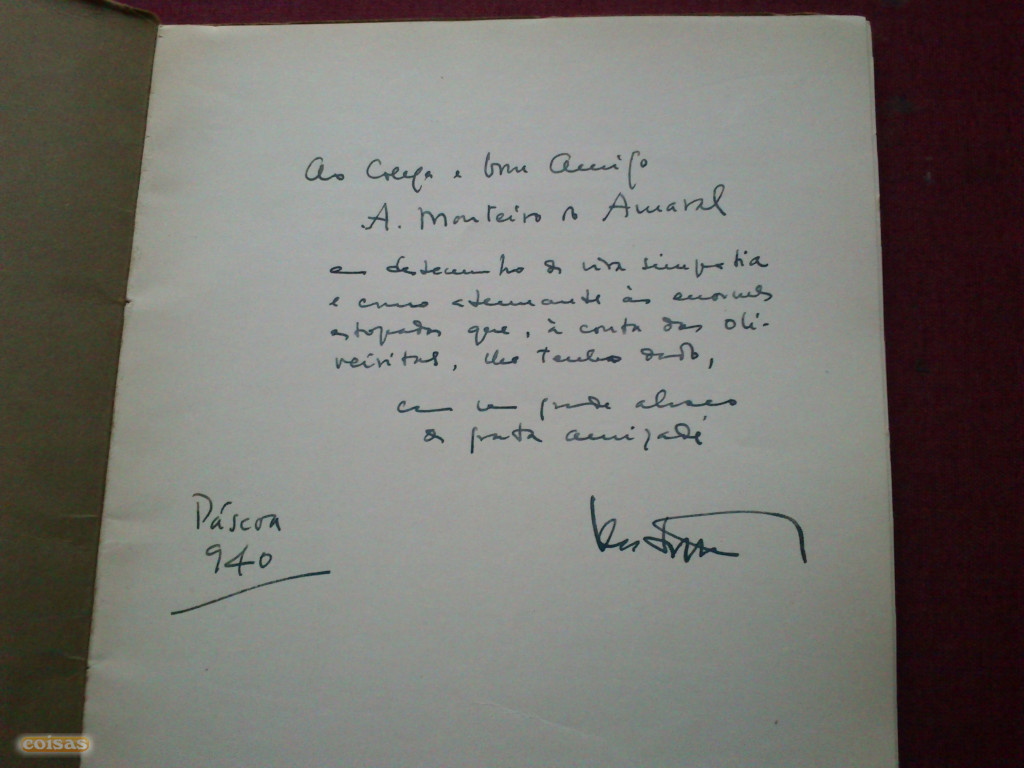 Ao Colega e bom Amigo
A. Monteiro do Amaral
em testemunho de viva simpatia
e como atenuante às enormes
estopadas que, à conta das Oli-
veiritas, lhe tenho dado,
com um grande abraço
de grata amizade
Páscoa
940
coisas